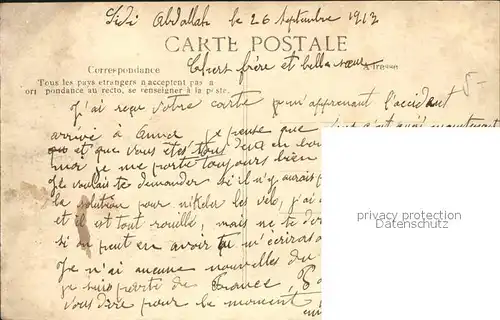 Sidi Abdallah le 26 Septembre 1912
CARTE POSTALE
Chers frère et belle sœur
Correspondance
Adresse
Tous les pays étrangers n'acceptent pas a
ori pondance au recto, se renseigner à la poste.
5-
J'ai reçu votre carte m'apprenant l'accident
arrivé à je pense que maintenant
et que vous êtes tous en bon
moi je me porte toujours bien
Je voulais te demander si il n'y aurais
la solution pour nikeler les velo, j'ai
et il est tout rouillé, mais ne te
si on peut en avoir tu m'écriras
Je n'ai aucune nouvelles du
je suis parti de France,
vous dire pour le moment
privacy protection
Datenschutz